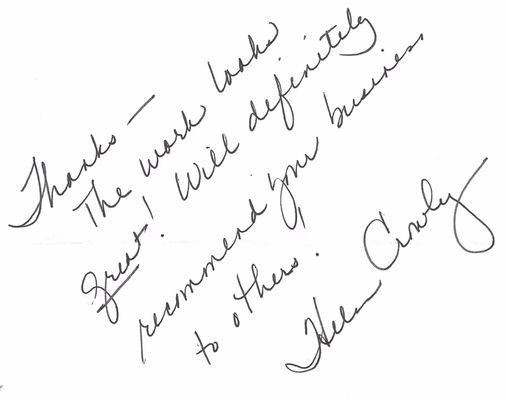 Thanks —
The work looks
great! Will definitely
recommend your business
to others.
Helen Crowley